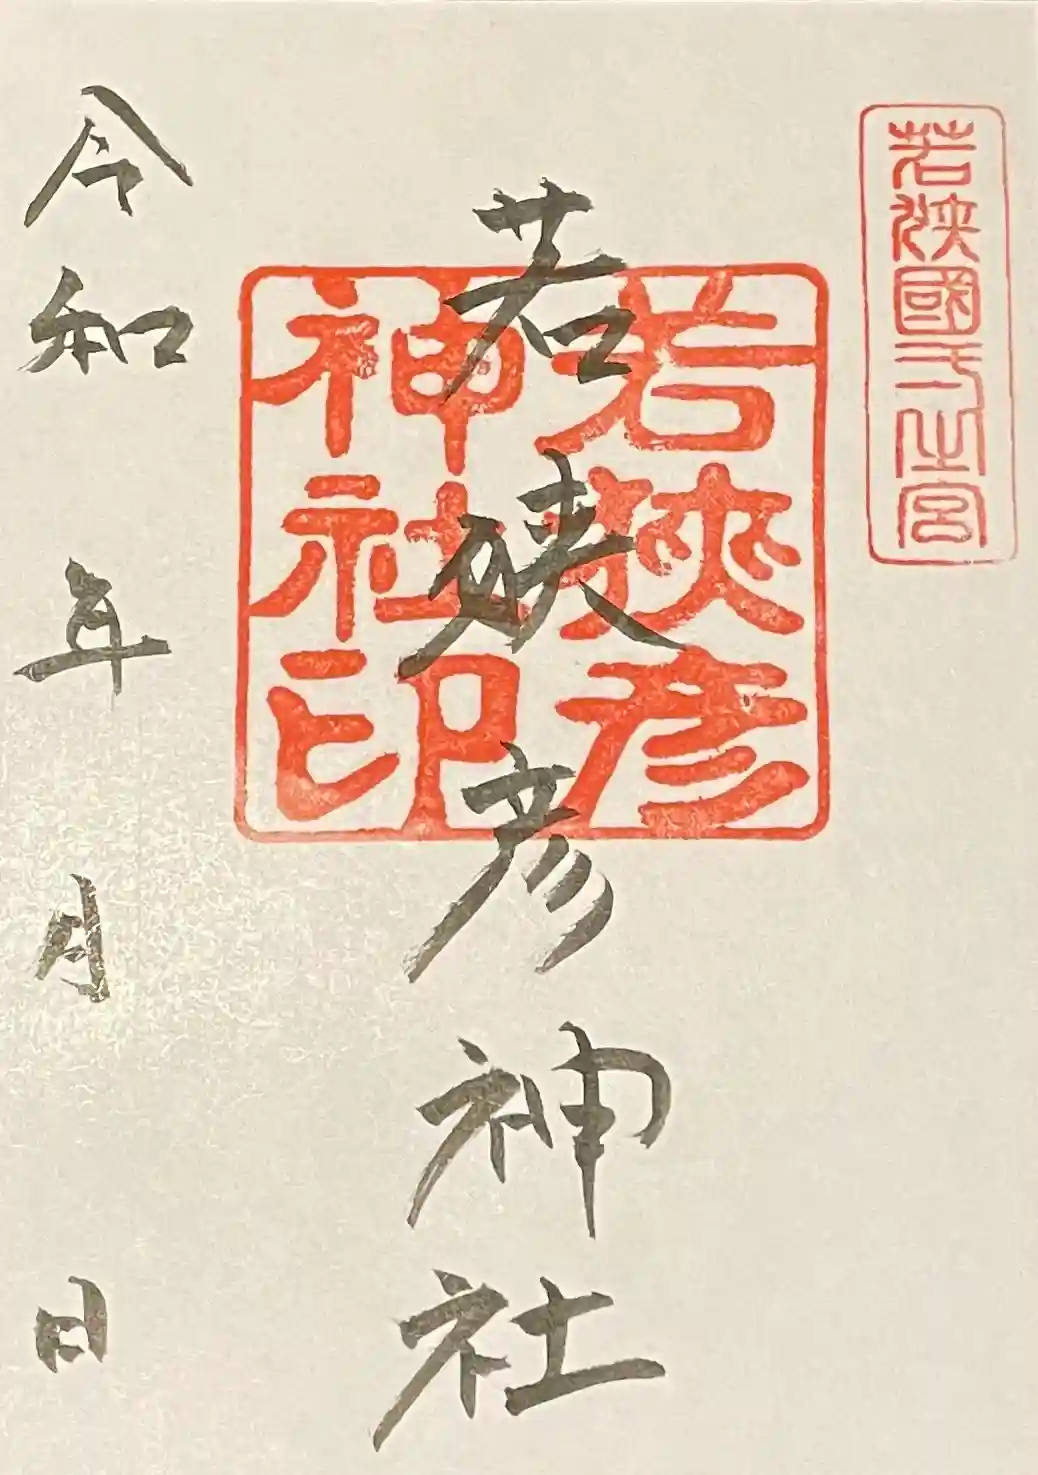 若狹國弌之宮
若狹彦
神社印
若狭彦神社
令和 年 月 日